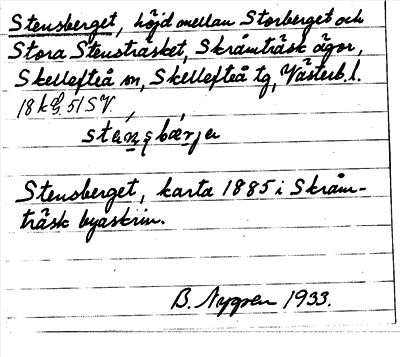 Stensberget, höjd mellan Storberget och
Stora Stensträsket, Skråmträsk ägor,
Skellefteå sn, Skellefteå tg, Västerb. l.
stensbærje
Stensberget, karta 1885 i Skråm-
träsk byaskrin.
B. Nygren 1933.